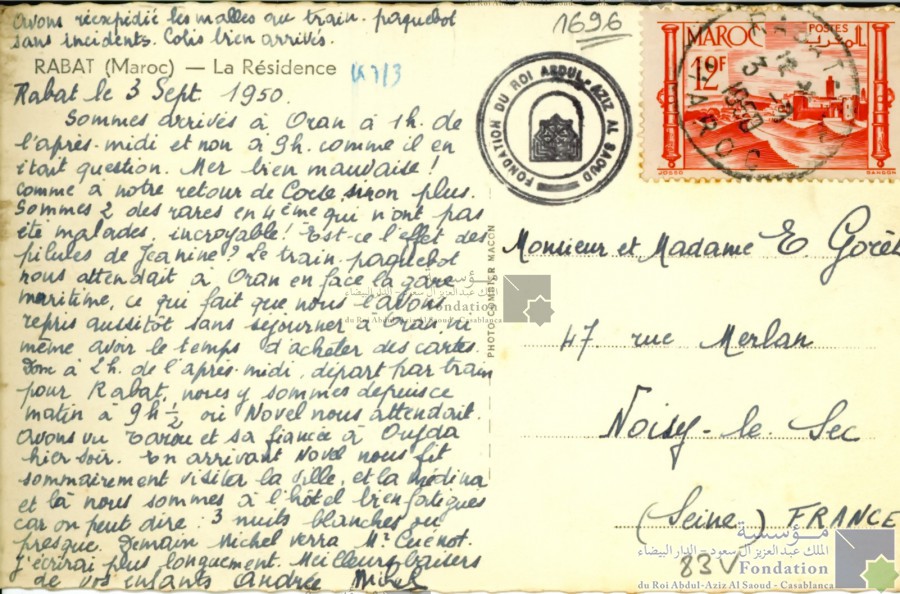 avons réexpédié les malles au train-paquebot
sans incidents. Colis bien arrivés.
RABAT (Maroc) — La Résidence
K7/3
Rabat le 3 Sept 1950.
Sommes arrivés à Oran à 1h. de
l'après-midi et non à 9h. comme il en
était question. Mer bien mauvaise!
comme à notre retour de Corse, sinon plus.
Sommes 2 des rares en 4ème qui n'ont pas
été malades, incroyable! Est-ce l'effet des
pilules de Jeanine? Le train-paquebot
nous attendait à Oran en face la gare
maritime, ce qui fait que nous l'avons
repris aussitôt sans séjourner à Oran, ni
même avoir le temps d'acheter des cartes.
Donc à 2h. de l'après-midi, départ par train
pour Rabat, nous y sommes depuis ce
matin à 9h ½ où Novel nous attendait.
Avons vu et sa fiancée à Oujda
hier soir. En arrivant Novel nous fit
sommairement visiter la ville, et la médina
et là nous sommes à l'hôtel bien fatigués
car on peut dire: 3 nuits blanches ou
presque. Demain Michel verra Mr Cuenot.
J'écrirai plus longuement. Meilleurs baisers
de vos enfants Andrée Michel
PHOTO-COMBIER MACON
1696
FONDATION DU ROI ABDUL-AZIZ AL SAOUD
MAROC
POSTES
المغرب
12F
RABAT
3
1950
MAROC
Monsieur et Madame E. Gorêt
47 rue Merlan
Noisy-le-Sec
(Seine) FRANCE
83V
مؤسسة
الملك عبد العزيز آل سعود - الدار البيضاء
Fondation
du Roi Abdul-Aziz Al Saoud - Casablanca
مؤسسة
الملك عبد العزيز آل سعود - الدار البيضاء
Fondation
du Roi Abdul-Aziz Al Saoud - Casablanca